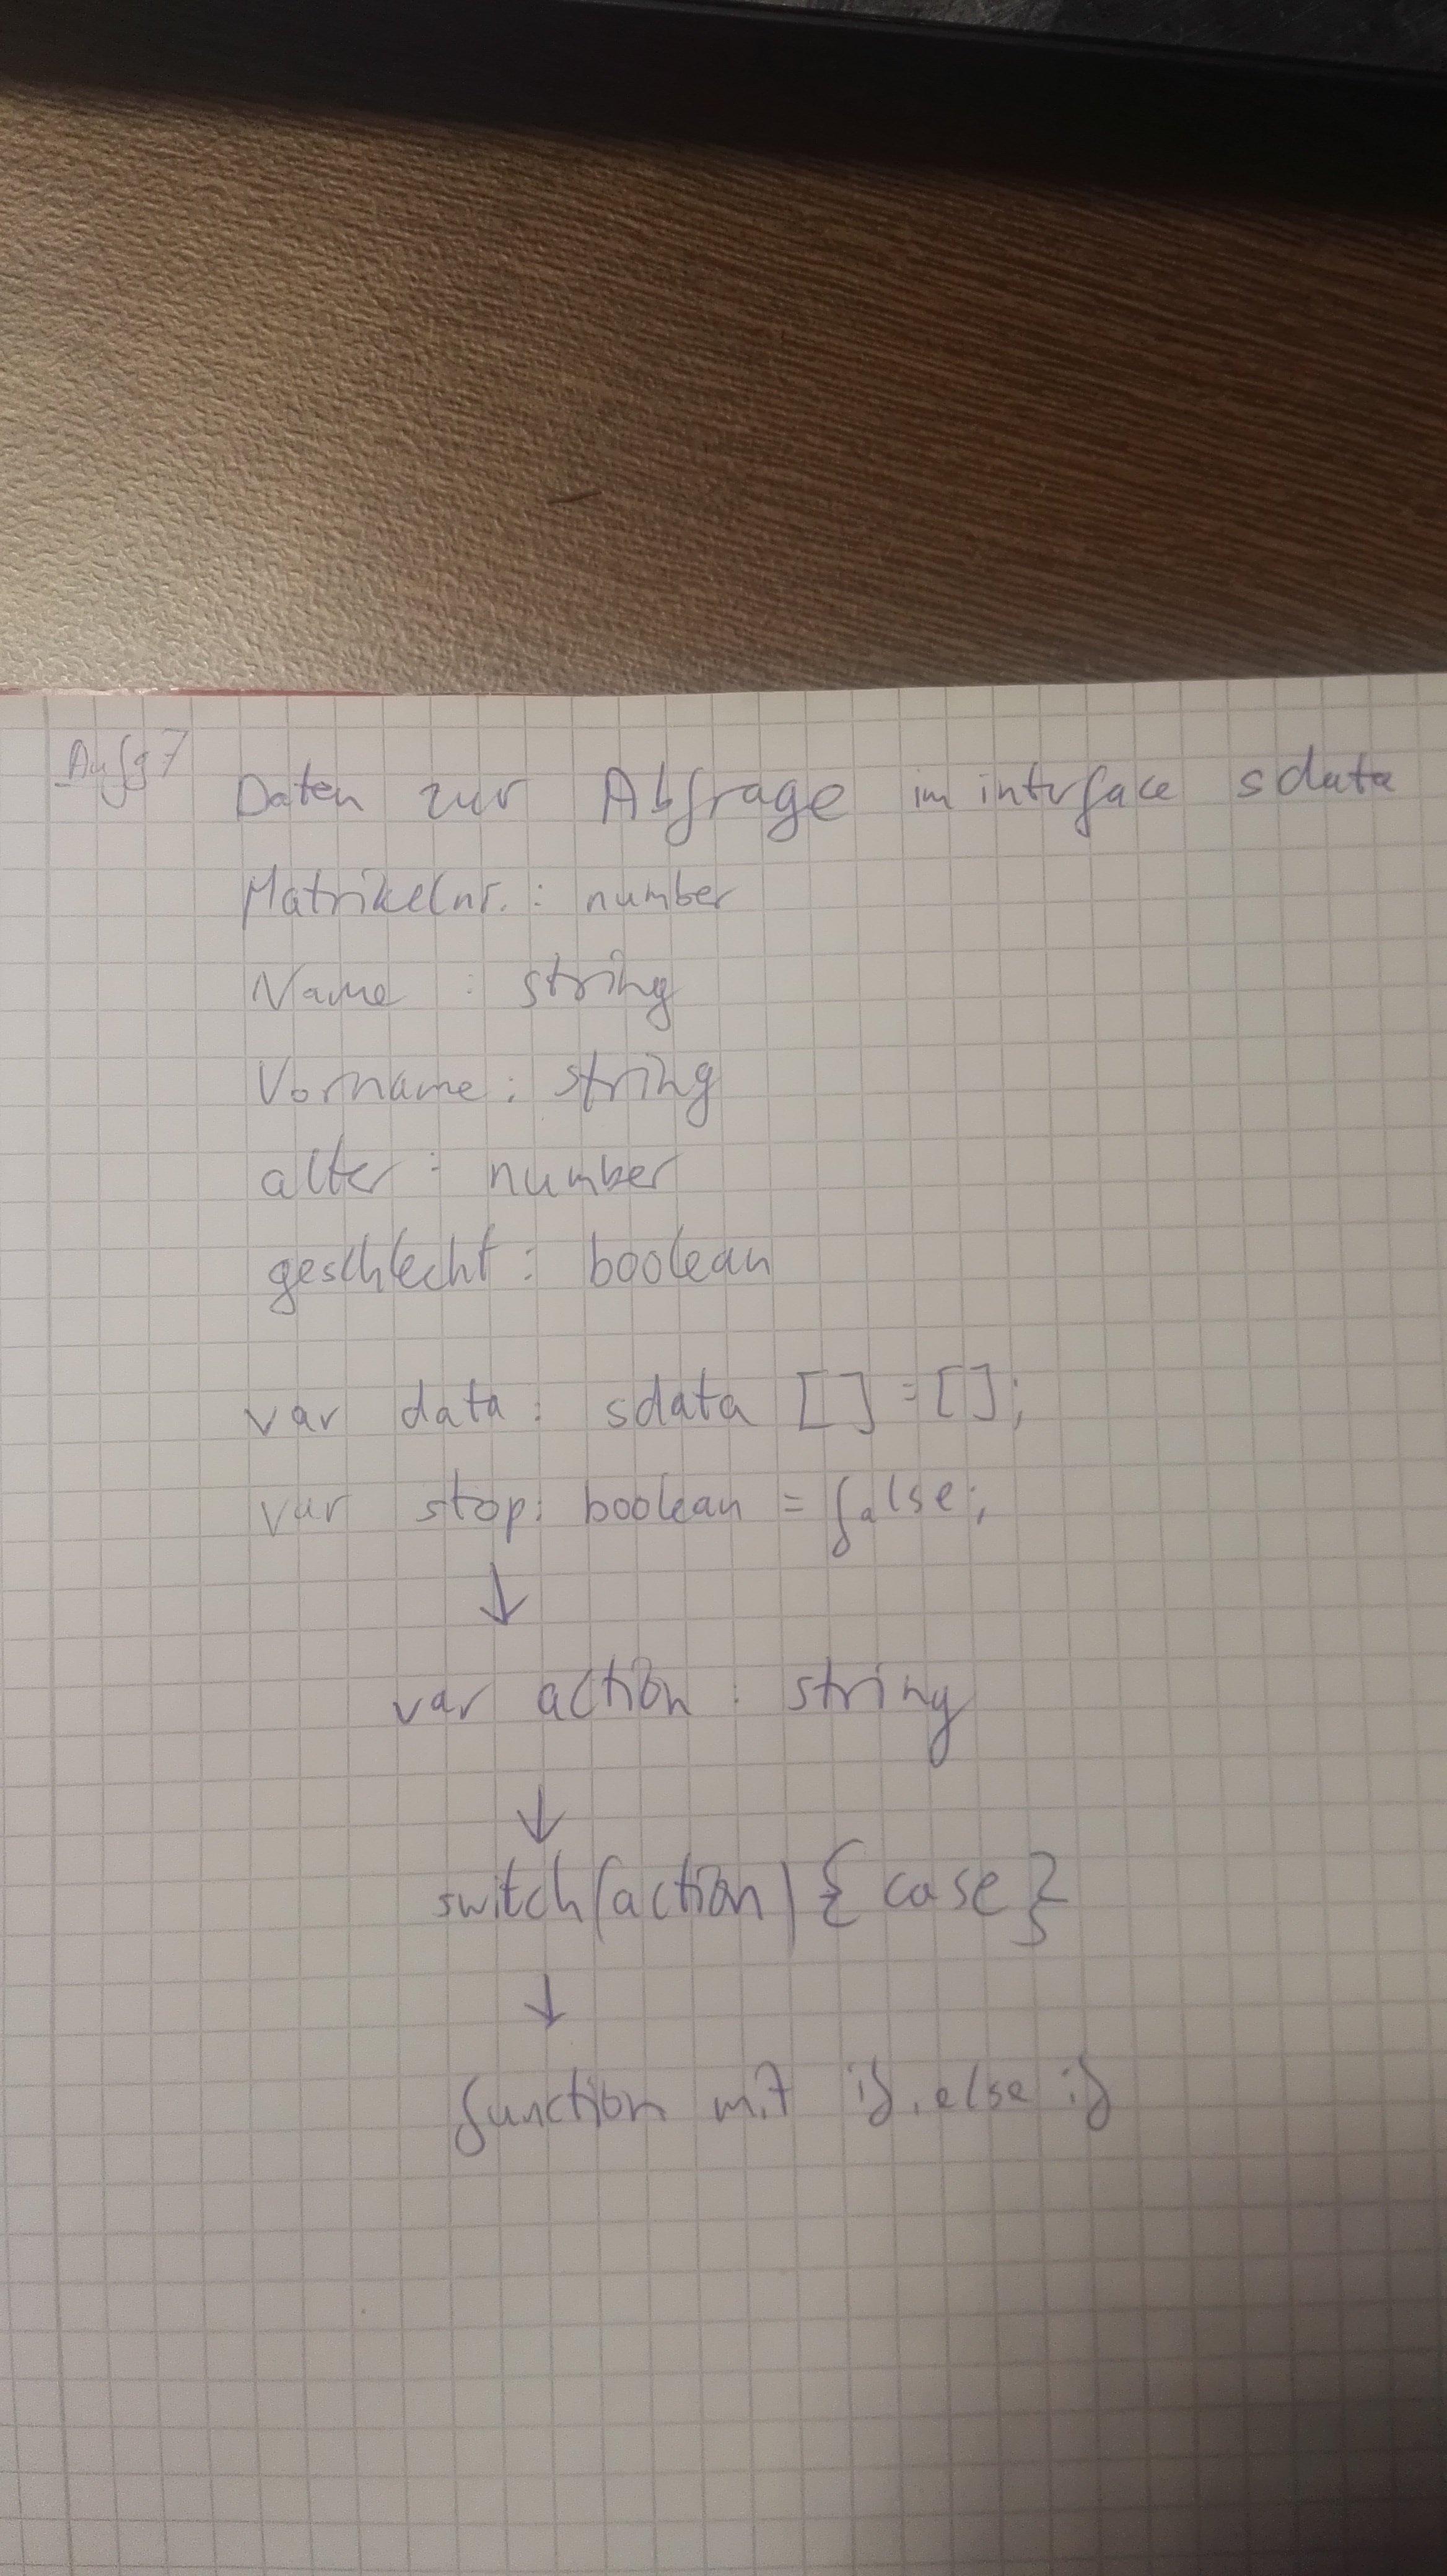 Aufg 7
Daten zur Abfrage im interface sdata
Matrikelnr. : number
Name : string
Vorname : string
alter : number
geschlecht : boolean
var data : sdata [] = [];
var stop : boolean = false;
↓
var action : string
↓
switch (action) { case }
↓
function mit if, else if